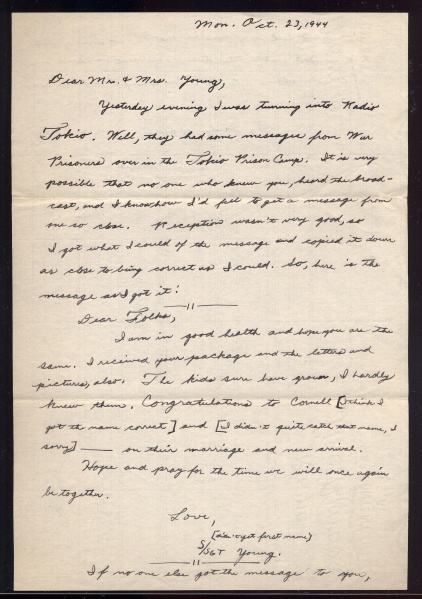 Mon. Oct. 23, 1944
Dear Mr. & Mrs. Young,
Yesterday evening I was tunning into Radio
Tokio. Well, they had some messages from War
Prisoners over in the Tokio Prison Camp. It is very
possible that no one who knew you, heard the broad-
cast, and I know how I'd feel to get a message from
one so close. Reception wasn't very good, so
I got what I could of the message and copied it down
as close to being correct as I could. So, here is the
message as I got it!
Dear Folks,
I am in good health and hope you are the
same. I received your package and the letters and
pictures, also. The kids sure have grown, I hardly
knew them. Congratulations to Cornell [I think I
got the name correct] and [I didn't quite catch that name, I
sorry] —— on their marriage and new arrival.
Hope and pray for the time we will once again
be together.
Love,
[didn't get first name]
S/SGT Young.
If no one else got the message to you,